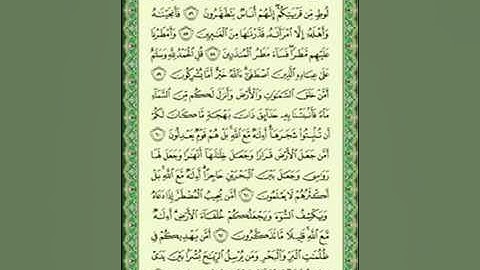 لُوطٍ مِّن قَرْيَتِكُمْ إِنَّهُمْ أُنَاسٌ يَتَطَهَّرُونَ ﴿٥٦﴾ فَأَنجَيْنَٰهُ
وَأَهْلَهُۥٓ إِلَّا ٱمْرَأَتَهُۥ قَدَّرْنَٰهَا مِنَ ٱلْغَٰبِرِينَ ﴿٥٧﴾ وَأَمْطَرْنَا
عَلَيْهِم مَّطَرًا فَسَآءَ مَطَرُ ٱلْمُنذَرِينَ ﴿٥٨﴾ قُلِ ٱلْحَمْدُ لِلَّهِ وَسَلَٰمٌ
عَلَىٰ عِبَادِهِ ٱلَّذِينَ ٱصْطَفَىٰٓ ءَآللَّهُ خَيْرٌ أَمَّا يُشْرِكُونَ ﴿٥٩﴾
أَمَّنْ خَلَقَ ٱلسَّمَٰوَٰتِ وَٱلْأَرْضَ وَأَنزَلَ لَكُم مِّنَ ٱلسَّمَآءِ
مَآءً فَأَنۢبَتْنَا بِهِۦ حَدَآئِقَ ذَاتَ بَهْجَةٍ مَّا كَانَ لَكُمْ
أَن تُنۢبِتُوا۟ شَجَرَهَآ أَءِلَٰهٌ مَّعَ ٱللَّهِ بَلْ هُمْ قَوْمٌ يَعْدِلُونَ ﴿٦٠﴾
أَمَّن جَعَلَ ٱلْأَرْضَ قَرَارًا وَجَعَلَ خِلَٰلَهَآ أَنْهَٰرًا وَجَعَلَ لَهَا
رَوَٰسِىَ وَجَعَلَ بَيْنَ ٱلْبَحْرَيْنِ حَاجِزًا أَءِلَٰهٌ مَّعَ ٱللَّهِ بَلْ
أَكْثَرُهُمْ لَا يَعْلَمُونَ ﴿٦١﴾ أَمَّن يُجِيبُ ٱلْمُضْطَرَّ إِذَا دَعَاهُ
وَيَكْشِفُ ٱلسُّوٓءَ وَيَجْعَلُكُمْ خُلَفَآءَ ٱلْأَرْضِ أَءِلَٰهٌ
مَّعَ ٱللَّهِ قَلِيلًا مَّا تَذَكَّرُونَ ﴿٦٢﴾ أَمَّن يَهْدِيكُمْ فِى
ظُلُمَٰتِ ٱلْبَرِّ وَٱلْبَحْرِ وَمَن يُرْسِلُ ٱلرِّيَٰحَ بُشْرًۢا بَيْنَ يَدَىْ